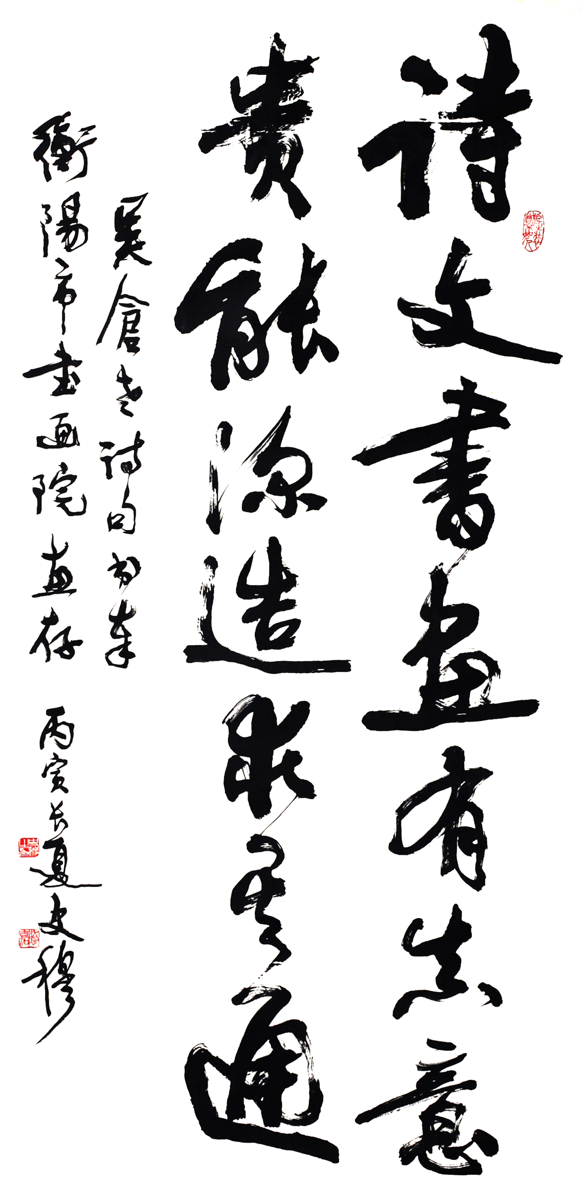 詩文書畫有真意
貴能深造求其通
吳倉老詩句書奉
衡陽市書画院惠存 丙寅長夏史穆